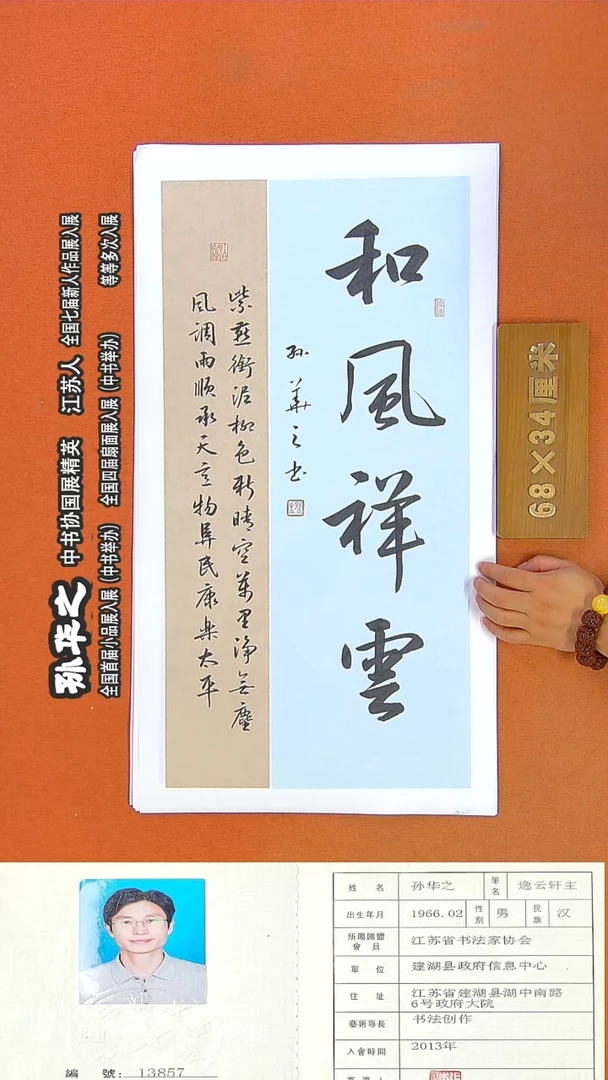 孙华之 中书协国展精英 江苏人 全国七届新人作品展入展
全国首届小品展入展(中书举办) 全国四届扇面展入展(中书举办) 等等多次入展
和風祥雲
孙華之书
紫燕銜泥柳色新晴空萬里淨無塵
風調雨順承天意物阜民康樂太平
68×34厘米
姓名 孙华之 筆名 逸云轩主
出生年月 1966.02 性别 男 民族 汉
所屬團體會員 江苏省书法家协会
單位 建湖县政府信息中心
住址 江苏省建湖县湖中南路
6号政府大院
藝術專長 书法创作
入會時間 2013年
編號: 13857